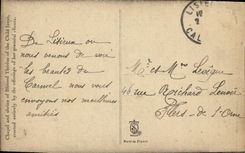 LISI
CAL
De Lisieux où
nous venons de voir
les beautés du
Carmel nous vous
envoyons nos meilleures
amitiés
Mr et Mme Lévêque
46 rue Richard Lenoir
Flers de l'Orne
Chapel and shrine of Blessed Thérèse of the Child Jesus,